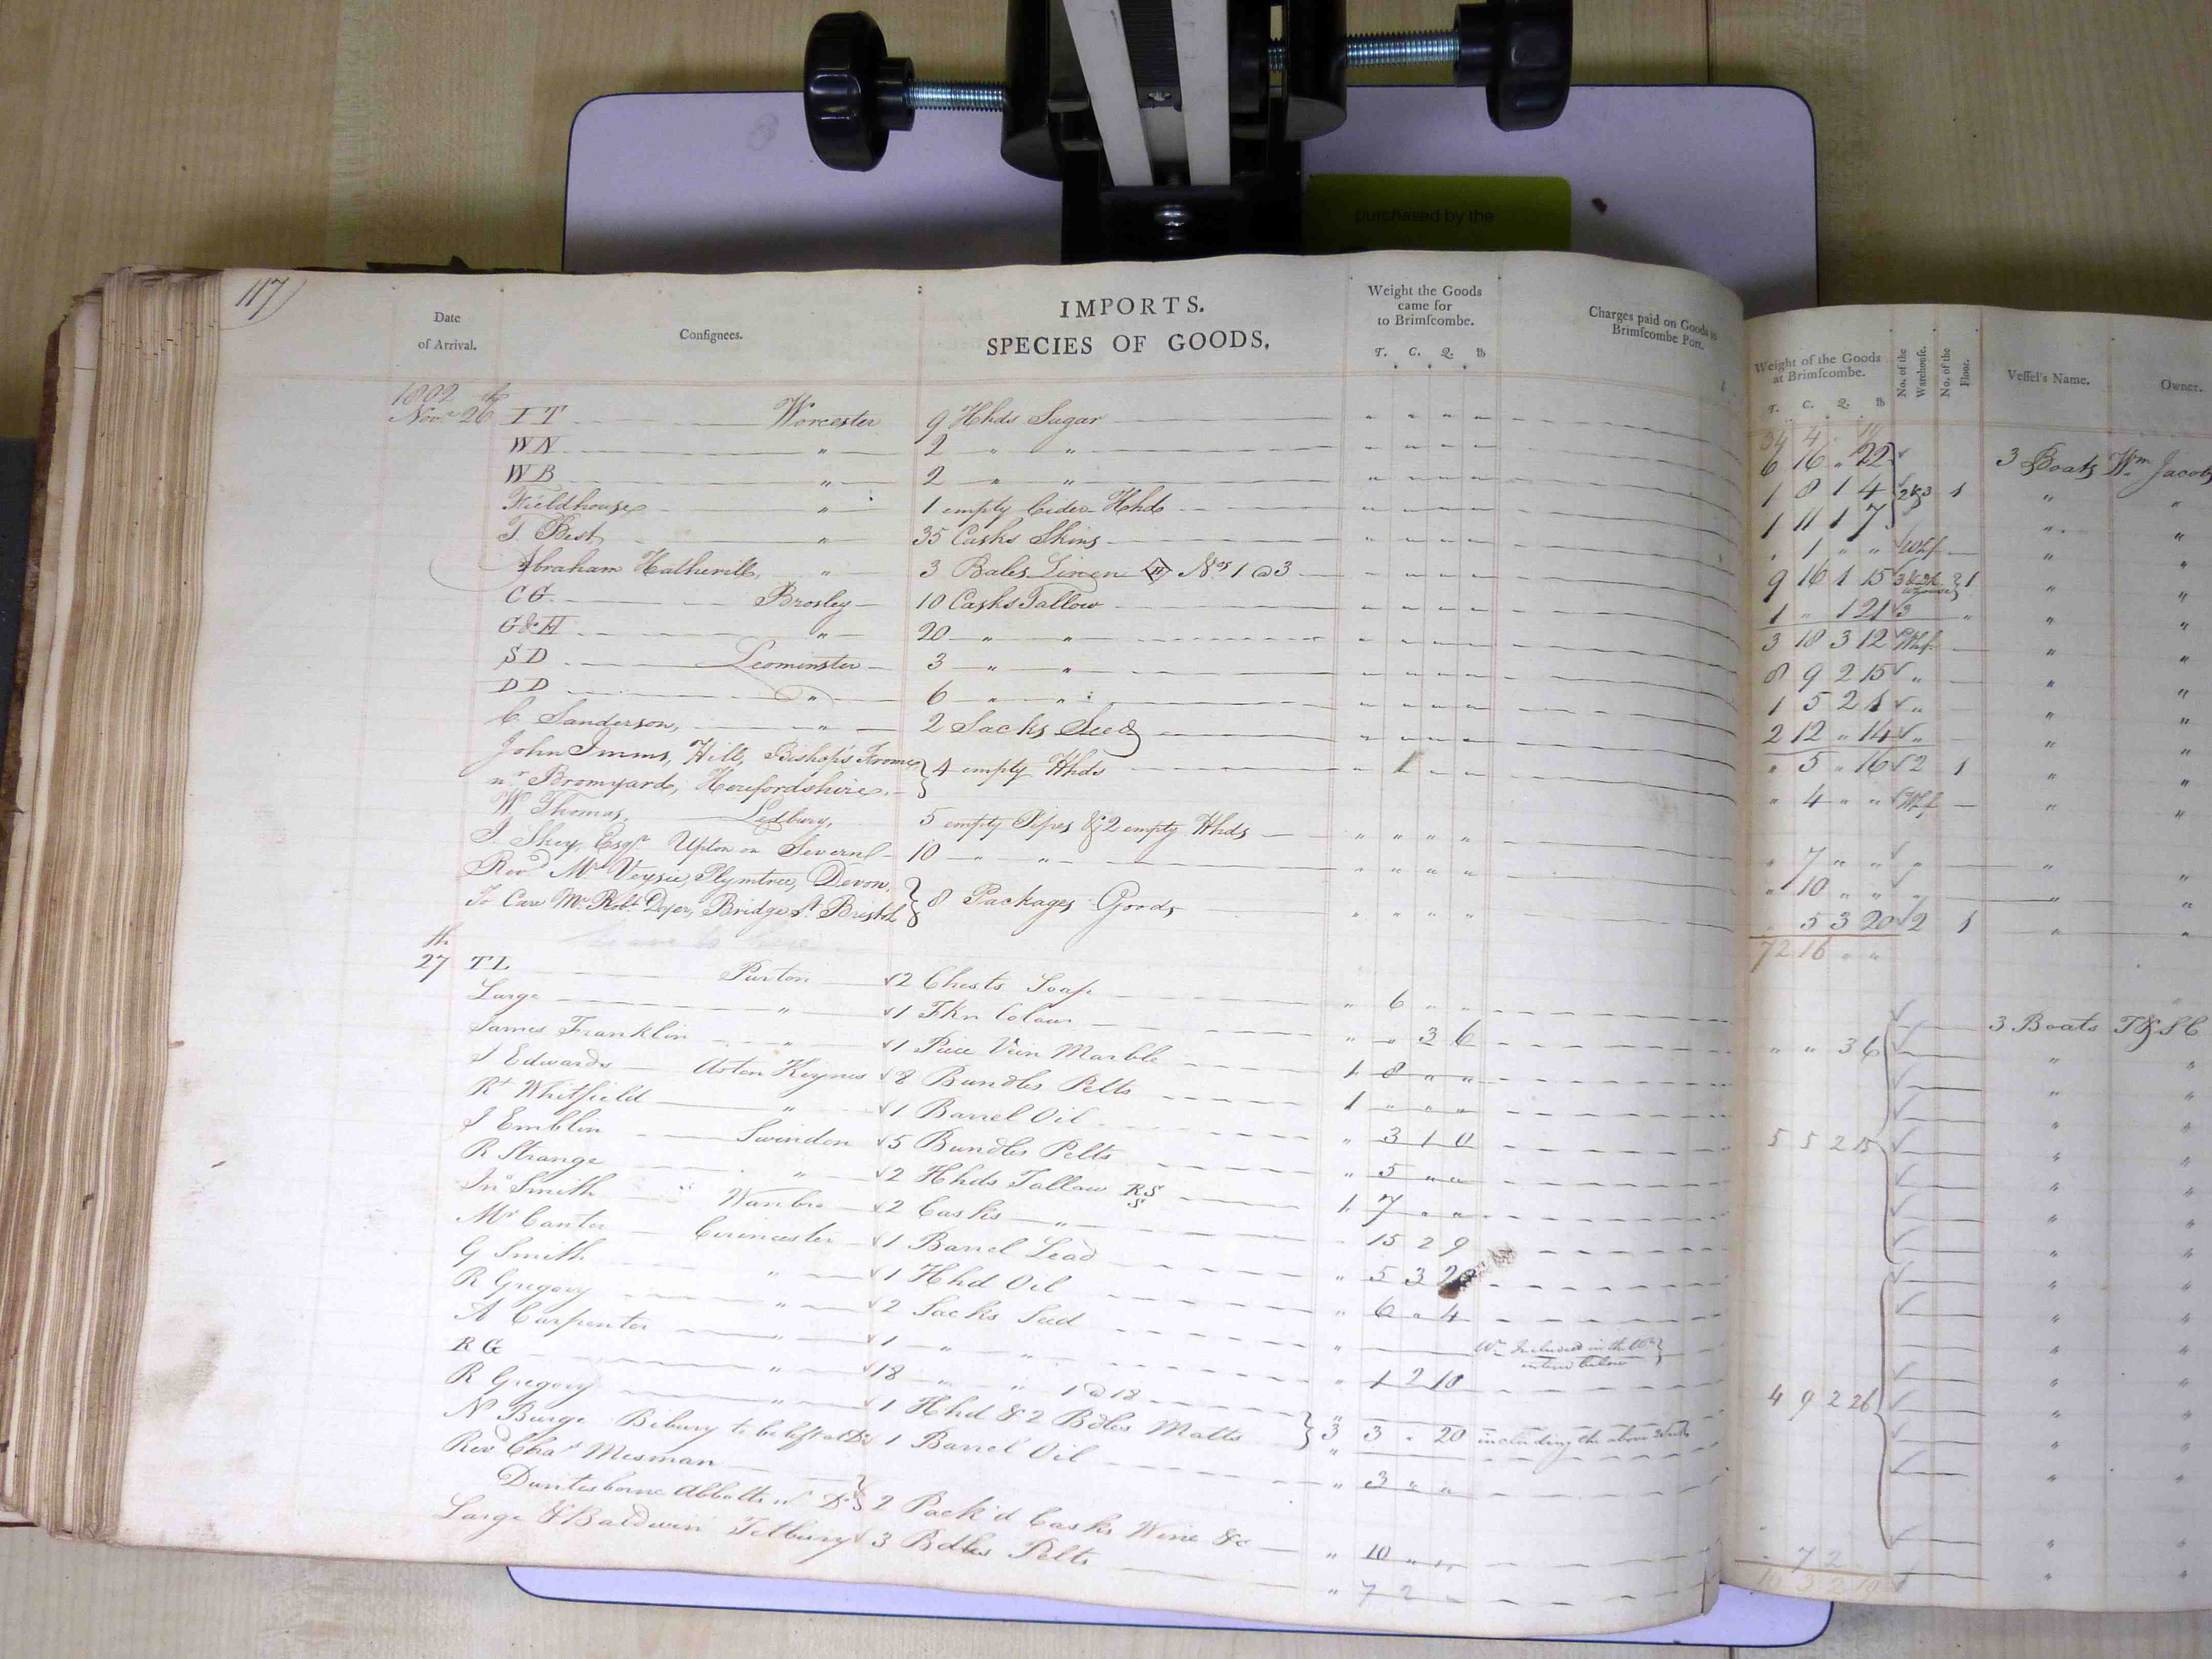 purchased by the
117
Date of Arrival.
Consignees.
IMPORTS.
SPECIES OF GOODS.
Weight the Goods came for to Brimscombe.
T. C. Q. lb
Charges paid on Goods to Brimscombe Port.
Weight of the Goods at Brimscombe.
T. C. Q. lb
No. of the Warehouse.
No. of the Floor.
Vessel's Name.
Owner.
1802
Novr 26th IT Worcester 9 Hhds Sugar 6 16 " 22 3 Boats Wm Jacobs
WN " 2 " " 1 8 1 4 2&3 1 " "
WB " 2 " " 1 11 1 7 " "
Fieldhouse " 1 empty Cider Hhd " 1 " " Whf " "
T. Best " 35 Casks Skins 9 16 1 15 1 " "
Abraham Hatherill, " 3 Bales Linen H Nos 1 @ 3 1 " 1 21 3 " " "
CG Brosley 10 Casks Tallow 3 18 3 12 Whf " "
G&H " 20 " " 8 9 2 15 " " "
SD Leominster 3 " " 1 5 2 1 " " "
DD " 6 " " 2 12 " 14 " " "
C. Sanderson, " 2 Sacks Seed " 5 " 16 2 1 " "
John Imms, Hill, Bishop's Frome
nr Bromyard, Herefordshire. 4 empty Hhds " 1 " " " 4 " " Whf " "
W Thomas, Ledbury, 5 empty Pipes & 2 empty Hhds " " " " " 7 " " " " "
J. Skey, Esqr Upton on Severn 10 " " " " " " " 10 " " " " "
Revd Mr Veysie, Plymtree, Devon,
To Care Mr Robt Dyer, Bridge St Bristol 8 Packages Goods " " " " 5 3 20 2 1 " "
72 16 " "
27th TL Purton 2 Chests Soap " 6 " " 3 Boats T&SC
Large " 1 Fkn Colour " " 3 6 " " 3 6 " "
James Franklin " 1 Piece Vein Marble 1 8 " " " "
J Edwards Aston Keynes 8 Bundles Pelts 1 " " " " "
Rt Whitfield " 1 Barrel Oil " 3 1 0 5 5 2 15 " "
J Emblin Swindon 5 Bundles Pelts " 5 " " " "
R Strange " 2 Hhds Tallow RS S 1 7 " " " "
Jno Smith Wanbro 2 Casks " 15 2 9 " "
Mr Canter Cirencester 1 Barrel Lead " 5 3 20 " "
G Smith " 1 Hhd Oil " 6 " 4 " "
R Gregory " 2 Sacks Seed " Wt Included in the Wt enterd below " "
A Carpenter " 1 " " " 1 2 10 " "
RG " 18 " " 1 @ 18 "
R Gregory " 1 Hhd & 2 Bdles Matts 3 3 " 20 including the above 4 9 2 26 " "
N Burge Bibury to be left at Do 1 Barrel Oil " 3 " " " "
Revd Chas Mesman
Duntesborne Abbotts nr Do 2 Pack'd Casks Wine &c " 10 " " " "
Large & Baldwin Tetbury 3 Bdles Pelts " 7 2 " 7 2 " "